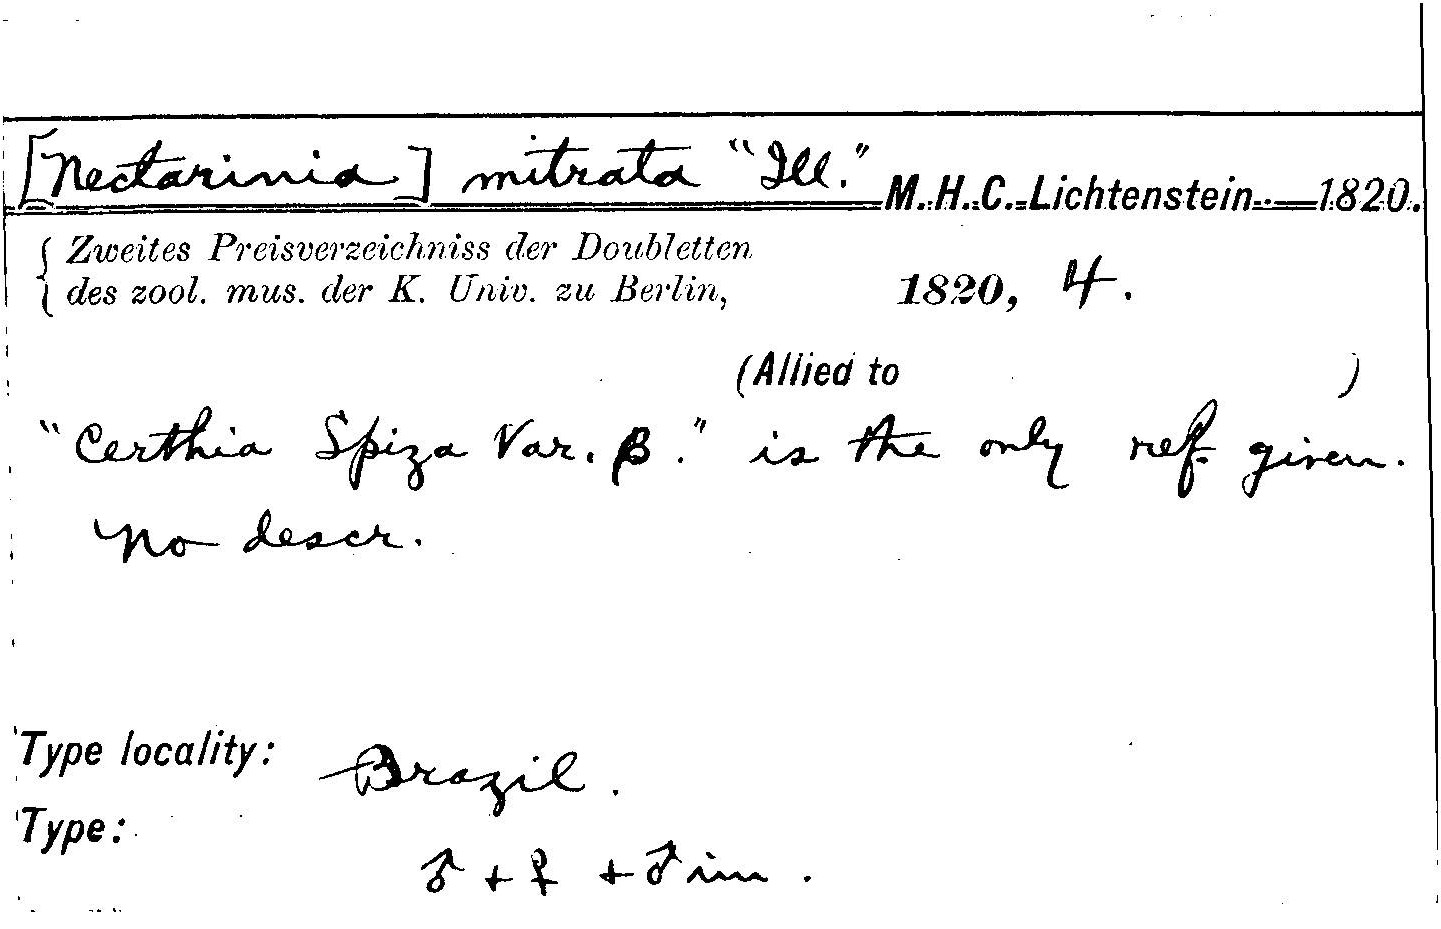 [Nectarinia] mitrata "Ill." M.H.C. Lichtenstein 1820.
Zweites Preisverzeichniss der Doubletten
des zool. mus. der K. Univ. zu Berlin, 1820, 4.
(Allied to )
"Certhia Spiza Var. β." is the only ref. given.
No descr.
Type locality: Brazil.
Type:
♂ + ♀ + ♂ im.